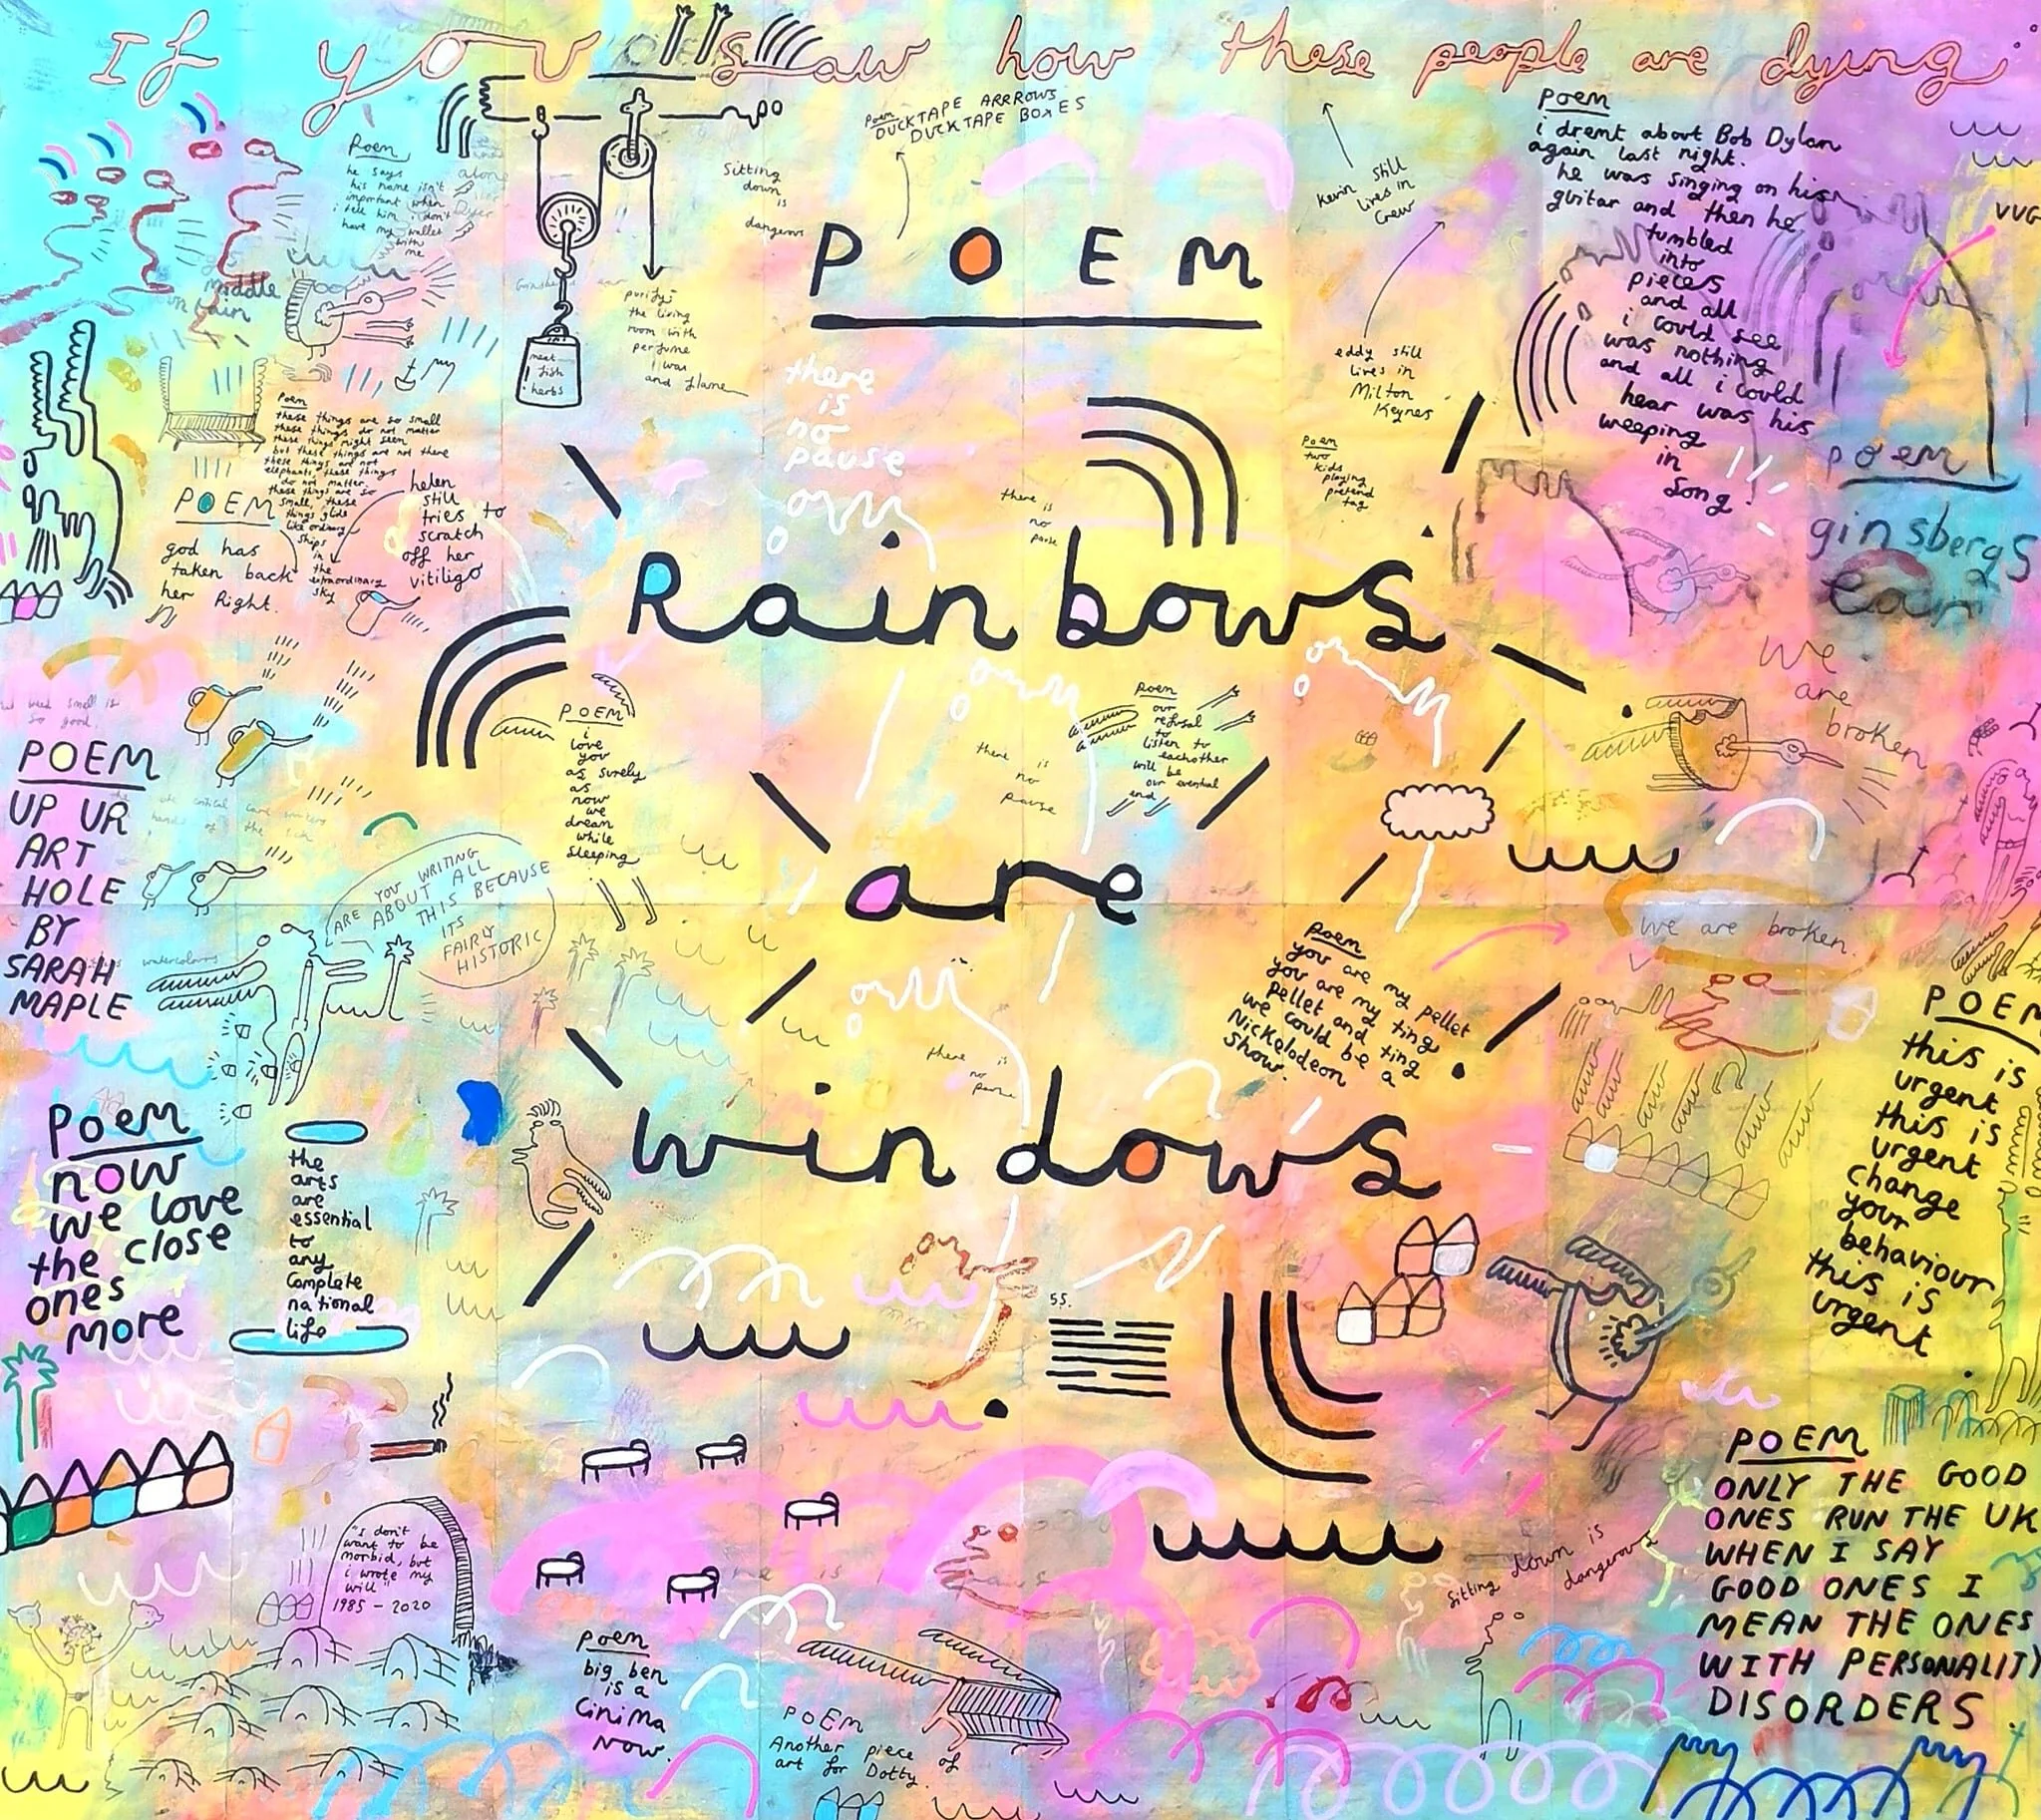 If you saw how these people are dying
Poem
he says
his name isn't
important when
i tell him i don't
have my wallet
with
me
alone
Poem
DUCKTAPE ARRROWS
DUCKTAPE BOXES
Sitting
down
is
dangerous
Kevin still
lives in
Crew
Poem
i dremt about Bob Dylan
again last night.
he was singing on his
guitar and then he
tumbled
into
pieces
and all
i could see
was nothing
and all i could
hear was his
weeping
in
Song.
VUG
middle
meat
fish
herbs
purify:
the living
room with
perfume
i was
and flame
POEM
there
is
no
pause
eddy still
lives in
Milton
Keynes
Poem
two
kids
playing
pretend
tag
poem
ginsbergs
Poem
these things are so small
these things do not matter
these things might seem
but these things are not there
these things are not
elephants, these things
do not matter.
these things are so
small, these
things glide
like ordinary
ships
in
the
extraordinary
sky
POEM
god has
taken back
her Right.
helen
still
tries to
scratch
off her
vitiligo
there
is
no
pause
Rainbows
are
windows
we
are
broken
POEM
i
love
you
as surely
as
now
we
dream
while
sleeping
Poem
our
refusal
to
listen to
eachother
will be
our eventual
end
there is
no
pause
weed smell is
so good.
POEM
UP UR
ART
HOLE
BY
SARAH
MAPLE
ARE YOU WRITING
ABOUT ALL
THIS BECAUSE
ITS
FAIRLY
HISTORIC
watercolours
we are broken.
Poem
you are my pellet
you are my ting
pellet and ting
we could be a
Nickelodeon
Show.
there is
no
pause
POEM
this is
urgent
this is
urgent
change
your
behaviour
this is
urgent
Poem
now
we love
the close
ones
more
the
arts
are
essential
to
any
Complete
national
life
55.
"I don't
want to be
morbid, but
i wrote my
will"
1985 - 2020
Sitting down is
dangerous
POEM
ONLY THE GOOD
ONES RUN THE UK
WHEN I SAY
GOOD ONES I
MEAN THE ONES
WITH PERSONALITY
DISORDERS.
Poem
big ben
is a
Cinima
Now.
POEM
Another piece of
art for Dotty.